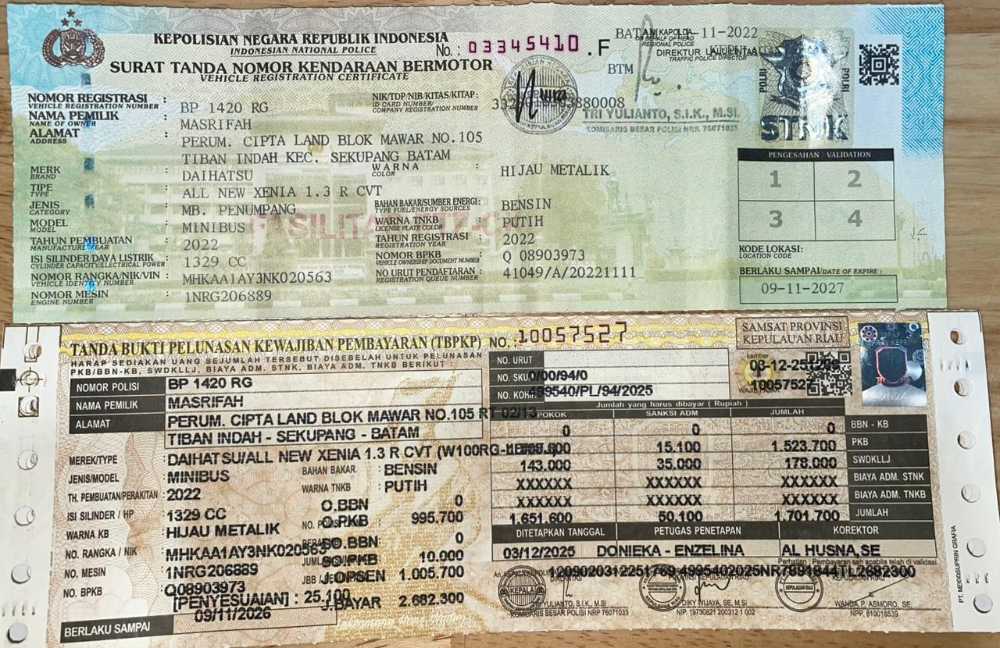 KEPOLISIAN NEGARA REPUBLIK INDONESIA
INDONESIAN NATIONAL POLICE
No.: 03345410 .F
SURAT TANDA NOMOR KENDARAAN BERMOTOR
VEHICLE REGISTRATION CERTIFICATE
BATAM -11-2022
KAPOLDA
REGIONAL POLICE
DIREKTUR LALU LINTAS
TRAFFIC POLICE DIRECTOR
BTM
TRI YULIANTO, S.I.K., M.SI.
KOMISARIS BESAR POLISI NRP 76071033
POLRI
POLRI
STNK
NOMOR REGISTRASI : BP 1420 RG
VEHICLE REGISTRATION NUMBER
NIK/TDP/NIB/KITAS/KITAP :
ID CARD NUMBER/
COMPANY REGISTRATION NUMBER
NAMA PEMILIK : MASRIFAH
NAME OF OWNER
ALAMAT : PERUM. CIPTA LAND BLOK MAWAR NO.105
ADDRESS
TIBAN INDAH KEC. SEKUPANG BATAM
MERK : DAIHATSU
BRAND
WARNA : HIJAU METALIK
COLOR
TIPE : ALL NEW XENIA 1.3 R CVT
TYPE
JENIS : MB. PENUMPANG
CATEGORY
BAHAN BAKAR/SUMBER ENERGI : BENSIN
TYPE FUEL/ENERGY SOURCES
MODEL : MINIBUS
MODEL
WARNA TNKB : PUTIH
LICENSE PLATE COLOR
TAHUN PEMBUATAN : 2022
MANUFACTURE YEAR
TAHUN REGISTRASI : 2022
REGISTRATION YEAR
ISI SILINDER/DAYA LISTRIK : 1329 CC
CYLINDER CAPACITY/ELECTRICAL POWER
NOMOR BPKB : Q 08903973
VEHICLE OWNERSHIP DOCUMENT NUMBER
NOMOR RANGKA/NIK/VIN : MHKAA1AY3NK020563
VEHICLE IDENTITY NUMBER
NO URUT PENDAFTARAN : 41049/A/20221111
REGISTRATION QUEUE NUMBER
NOMOR MESIN : 1NRG206889
ENGINE NUMBER
PENGESAHAN VALIDATION
1 2
3 4
KODE LOKASI:
LOCATION CODE
BERLAKU SAMPAI/DATE OF EXPIRE :
09-11-2027
TANDA BUKTI PELUNASAN KEWAJIBAN PEMBAYARAN (TBPKP) NO.: 10057527
HARAP SEDIAKAN UANG SEJUMLAH TERSEBUT DISEBELAH UNTUK PELUNASAN
PKB/BBN-KB, SWDKLLJ, BIAYA ADM. STNK, BIAYA ADM. TNKB BERIKUT :
SAMSAT PROVINSI
KEPULAUAN RIAU
10057527
NO. URUT
NO. SKUM 0/00/94/0
NO. KOHIR 499540/PL/94/2025
NOMOR POLISI BP 1420 RG
NAMA PEMILIK MASRIFAH
ALAMAT PERUM. CIPTA LAND BLOK MAWAR NO.105 RT 02/13
TIBAN INDAH - SEKUPANG - BATAM
MEREK/TYPE : DAIHATSU/ALL NEW XENIA 1.3 R CVT
JENIS/MODEL : MINIBUS
BAHAN BAKAR : BENSIN
TH. PEMBUATAN/PERAKITAN : 2022
WARNA TNKB : PUTIH
ISI SILINDER / HP : 1329 CC
O.BBN 0
WARNA KB : HIJAU METALIK
O.PKB 995.700
NO. RANGKA / NIK : MHKAA1AY3NK020563
SO.BBN : 0
NO. MESIN : 1NRG206889
SO.PKB 10.000
NO. BPKB : Q08903973
J.OPSEN 1.005.700
[PENYESUAIAN] : 25.100
J.BAYAR 2.682.300
BERLAKU SAMPAI 09/11/2026
Jumlah yang harus dibayar ( Rupiah )
POKOK SANKSI ADM JUMLAH
0 0 0 BBN - KB
15.100 1.523.700 PKB
143.000 35.000 178.000 SWDKLLJ
XXXXXX XXXXXX XXXXXX BIAYA ADM. STNK
XXXXXX XXXXXX XXXXXX BIAYA ADM. TNKB
1.651.600 50.100 1.701.700 JUMLAH
DITETAPKAN TANGGAL PETUGAS PENETAPAN KOREKTOR
03/12/2025 DONIEKA - ENZELINA AL HUSNA,SE
KOMISARIS BESAR POLISI NRP 76071033